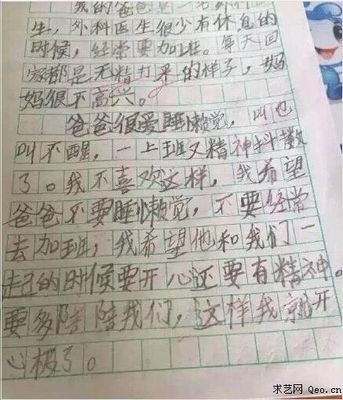 我的爸爸是一名外科医
生，外科医生很少有休息的
时候，经常要加班。每天回
家都是无精打采的样子，妈
妈很不高兴。
爸爸很爱睡懒觉，叫也
叫不醒，一上班又精神抖擞
了。我不喜欢这样，我希望
爸爸不要睡懒觉，不要经常
去加班，我希望他和我们一
起的时候要开心还要有精神。
要多陪陪我们，这样我就开
心极了。
求艺网 Qeo.cn